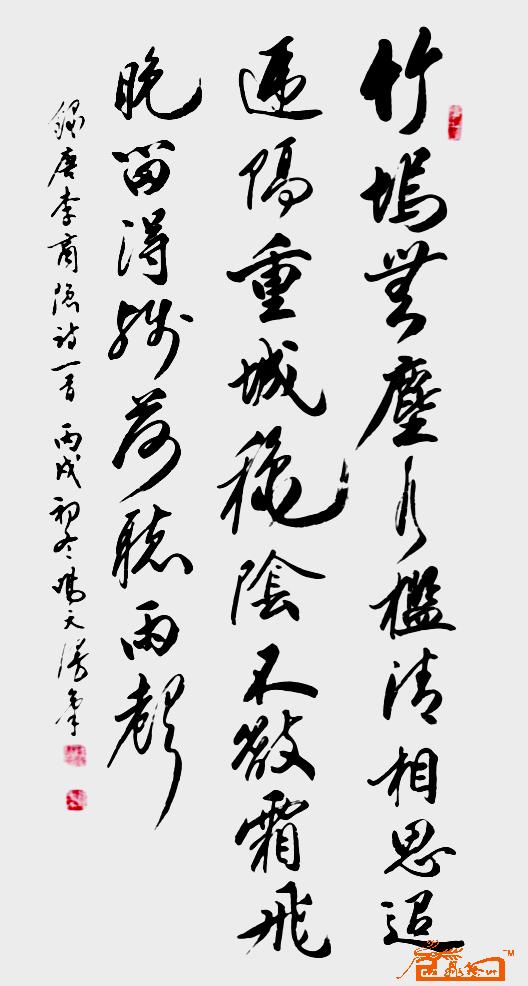 竹塢無塵水檻清相思迢
遞隔重城穐陰不散霜飛
晚留得殘荷聽雨聲
錄唐李商隱詩一首 丙戌初冬